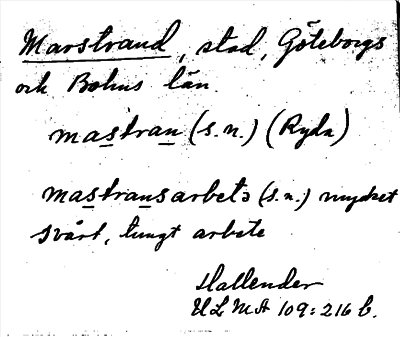 Marstrand, stad, Göteborgs
och Bohus län.
mastran (s.n.) (Ryda)
mastransarbetə (s.n.) mycket
svårt, tungt arbete
Hallender
ULMA 109:216 b.